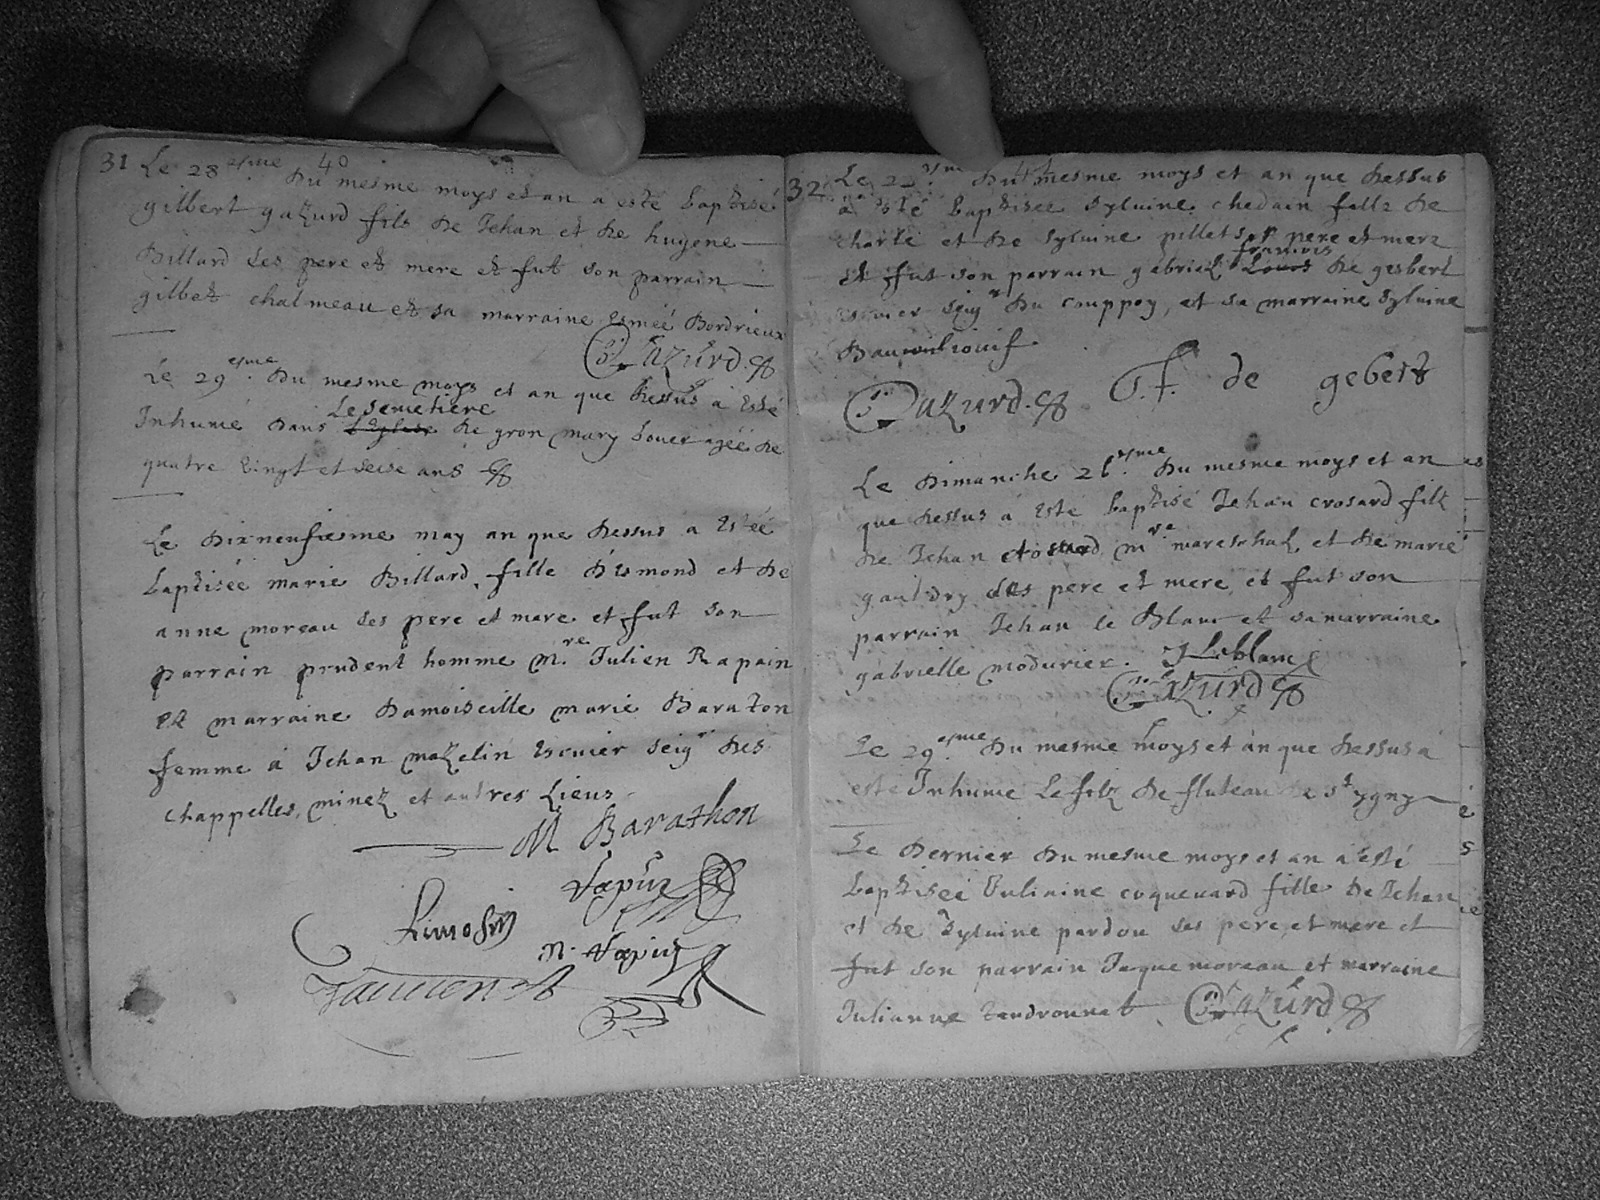 31 40
Le 28 esme Du mesme moys et an a esté baptisé
gilbert gazurd filz de Jehan et de huguene
Billard ses pere et mere et fut son parrain
gilbet chalmeau et sa marraine Esmeé Bordrieux
Gazurd
Le 29 esme Du mesme moys et an que dessus a esté
Inhumé dans Le semetiere de gron mary bouer ageé de
quatre vingt et seise ans
Le dixneufiesme may an que dessus a estéé
baptiseé marie Billard fille d'esmond et de
anne moreau ses pere et mere et fut son
parrain prudent homme m.re Julien Rapain
et marraine damoiseille marie Baraton
femme à Jehan mazelin Escuier seigr des
chappelles, minez et autres Lieux
M Barathon
Limosin
32
Le 22 esme Du mesme moys et an que dessus
a esté baptiseé Sylvine chedain fille de
charle et de Sylvine pillet ses pere et mere
et fut son parrain gabriel francois Louis de gesbert
escuier seigr du couppoy, et sa marraine Sylvine
Gazurd G. f. de gebert
Le dimanche 26 esme Du mesme moys et an
que dessus a esté baptisé Jehan crosard filz
de Jehan crosard mre mareschal et de marie
gaudry ses pere et mere et fut son
parrain Jehan le Blanc et sa marraine
gabrielle modurier. J Leblanc
Gazurd
Le 29 esme Du mesme moys et an que dessus a
esté Inhumé Le filz de fluteau de st ygny
Le dernier du mesme moys et an a esté
baptiseé Juliaine coquevard fille de Jehan
et de Sylvine pardou ses pere et mere et
fut son parrain Jaque moreau et marraine
Julianne tandronnat Gazurd